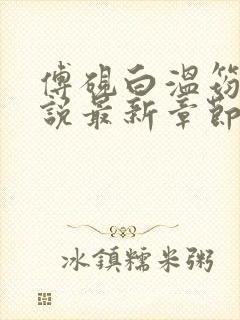 傅硯白溫筠
說最新章節
冰鎮糯米粥